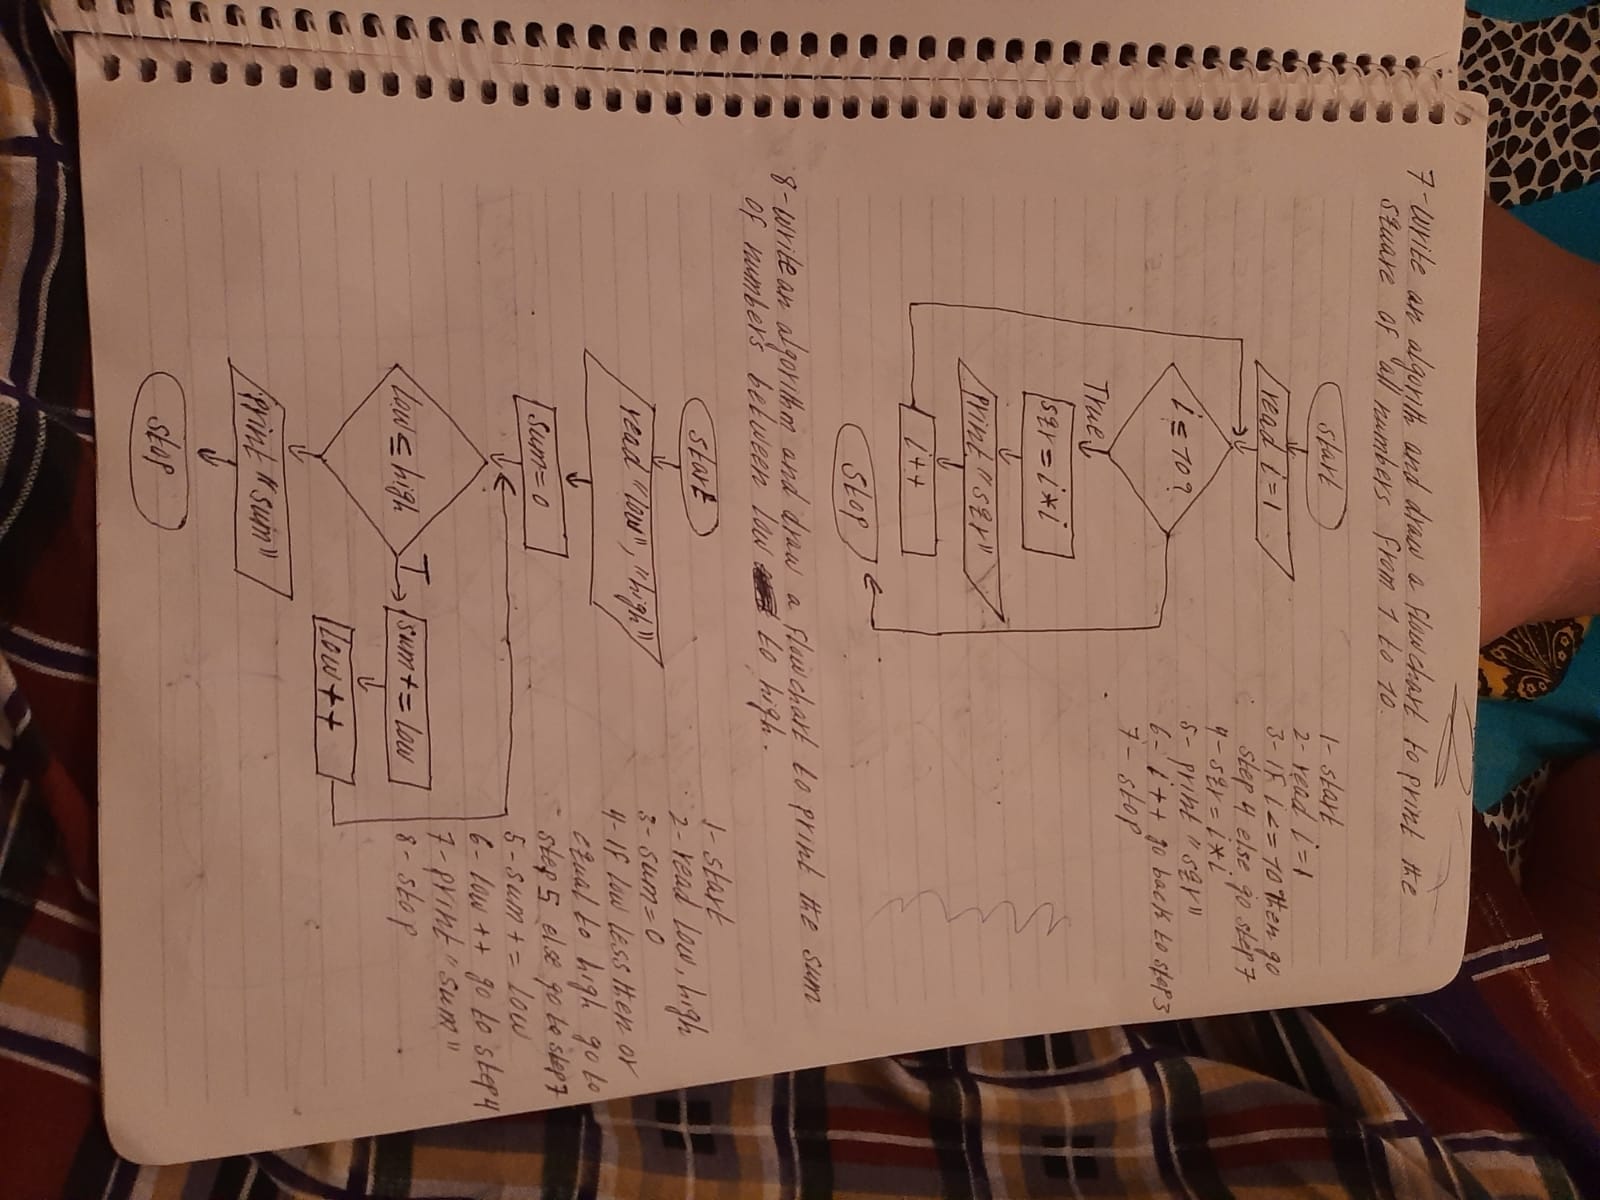 7-write an algorith and draw a flowchart to print the
square of all numbers from 1 to 10.
start
read i=1
i≤10?
True
sqr=i*i
print "sqr"
i++
stop
1-start
2-read i=1
3-if i<=10 then go
step 4 else go step 7
4-sqr=i*i
5-print "sqr"
6-i++ go back to step 3
7-stop
8-write an algorithm and draw a flowchart to print the sum
of numbers between low to high.
start
read "low", "high"
sum=0
low≤high
T
sum+=low
low++
print "sum"
stop
1-start
2-read low, high
3-sum=0
4-if low less then or
equal to high go to
step 5 else go to step 7
5-sum+=low
6-low++ go to step 4
7-print "sum"
8-stop